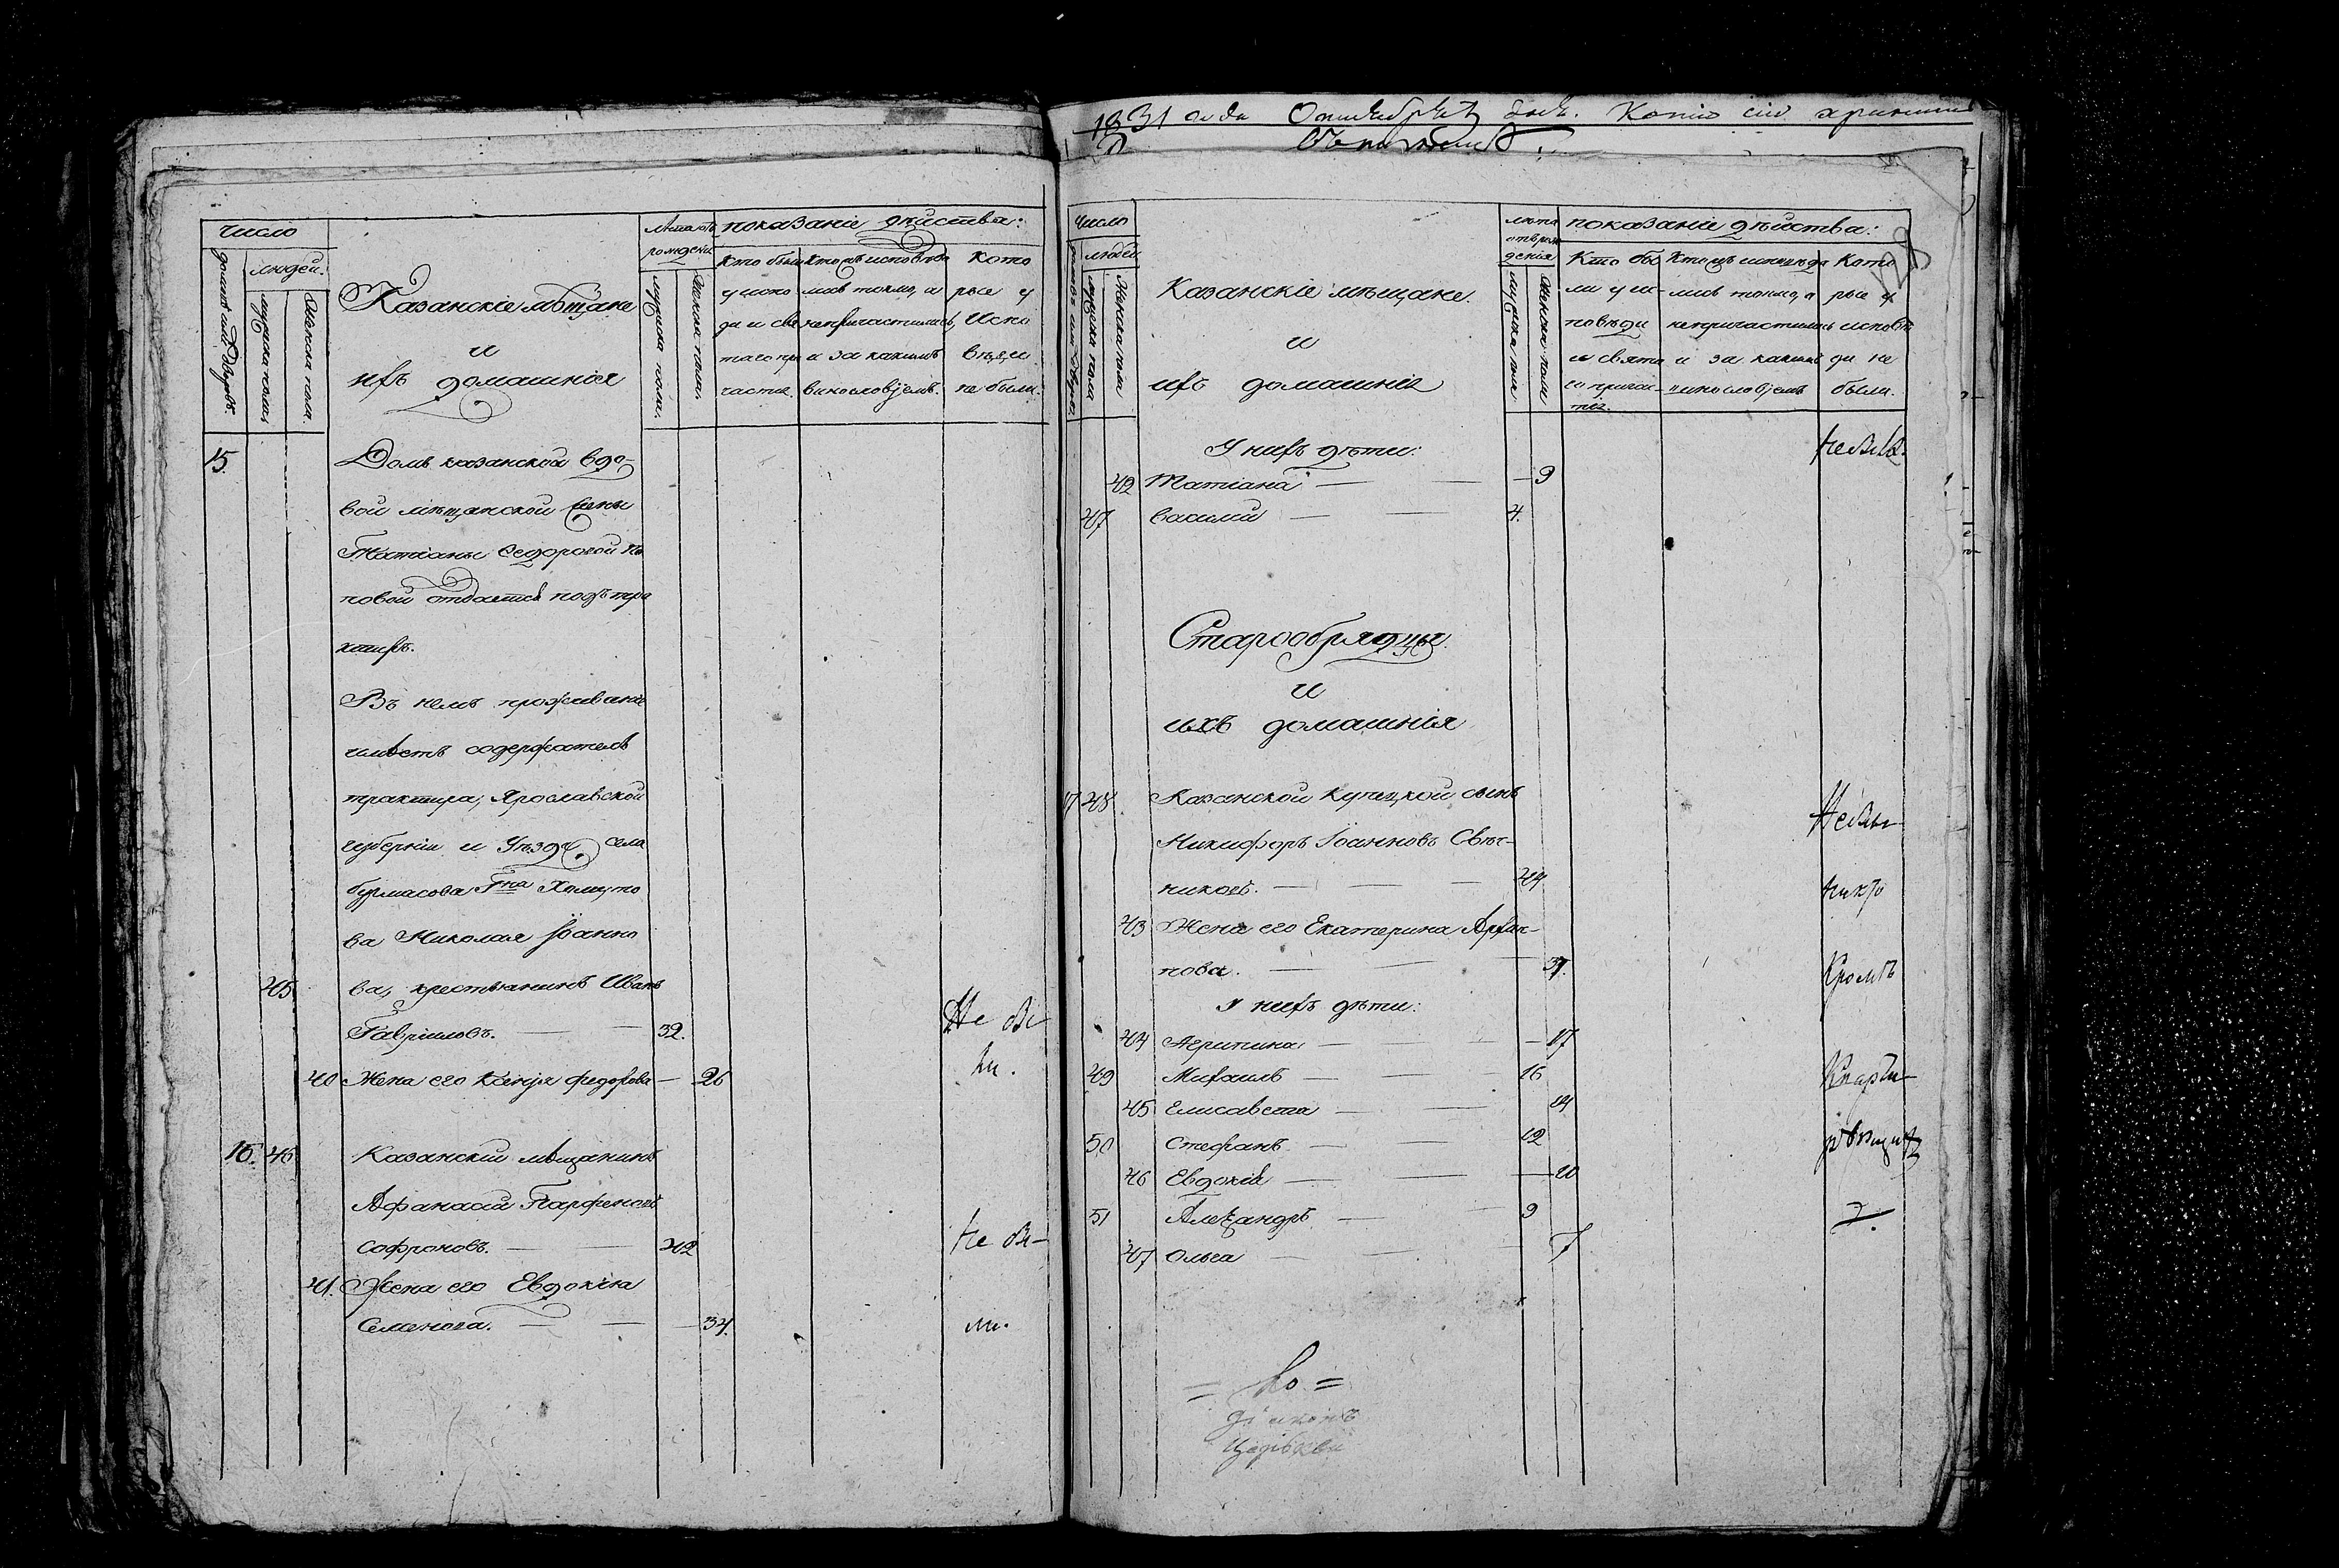 число
домовъ или дворовъ.
людей.
мужска полъ.
женска пола.
Казанскіе мѣщане
и
ихъ домашнія
лѣта отъ
рожденія
мужска пола.
женска пола.
показаніе дѣйства:
Кто былъ
у испо
ди и свя
таго при
частія.
Кто исповѣда
лися токмо, а
непричастились,
и за какимъ
винословіемъ.
Кото
рые у
Испо
вѣди
не были.
15.
Домъ казанской вдо-
вой мѣщанской жены
Татіаны Ѳедоровой По
повой отдается подъ тра
ктиръ.
Въ немъ проживаніе
имѣетъ содержатель
трактира, Ярославской
губерніи и Уѣзда, села
бурмасова Гна Хомуто
ва Николая Іоанно
45 ва, крестьянинъ Иванъ
Гавриловъ. — — 32.
Не бы
ли.
40 Жена его Ксенія федорова — 26
16. 46 Казанскій мѣщанинъ
Афанасій Парфеновъ
Софроновъ. — — 42
Не бы-
41. Жена его Евдокія
Семенова. — — — 34.
ли.
1831 года
Копію сію
число
людей
мужска пола
женска пола
Казанскіе мѣщане.
и
ихъ домашнія
лѣта
отъ рож
денія
мужска пола
женска пола
показаніе дѣйства:
Кто бы
ли у ис-
повѣди
и свята
го прича-
тія.
Кто исповѣда
лись токмо, а
непричастились
и за какимъ
винословіемъ
Кото
рые у
исповѣ
ди не
были.
У нихъ дѣти:
42 Татіана — — — 9
47 Василій — — 4.
Старообрядцы
и
ихъ домашнія
17 48 Казанской Купецкой сынъ
Никифоръ Іоанновъ Свѣч-
никовъ. — — — 44
Не бы
никто
43 Жена его Екатерина
пова. — — — 37.
Кромѣ
У нихъ дѣти:
44 Агрипина — — — 17
49 Михаилъ — — 16
45 Елисавета — — 14
50 Стефанъ — — 12
46 Евдокія — — — 10
51 Александръ — — 9
47 Ольга — — 7
= ко =
діаконъ